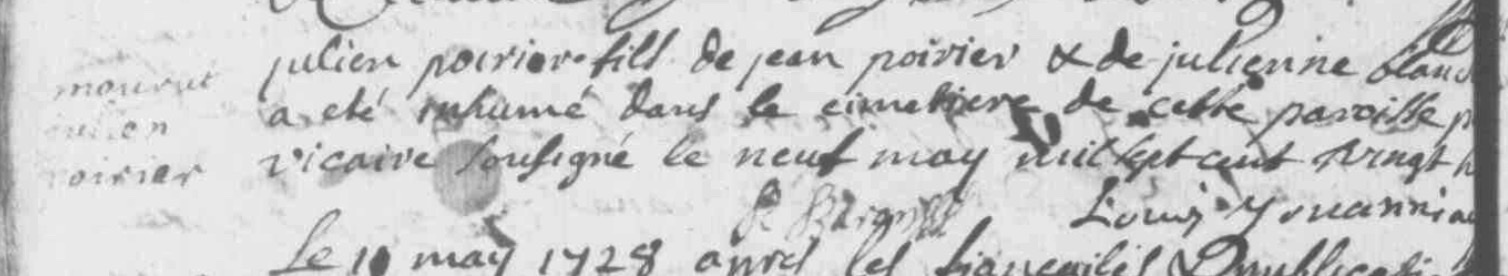 mourut
julien
poirier
julien poirier fils de jean poirier & de julienne
a eté inhumé dans le cimetiere de cette paroisse
vicaire sousigné le neuf may mil sept cent vingt
Louis
Le 10 may 1728 apres les fiançailes &